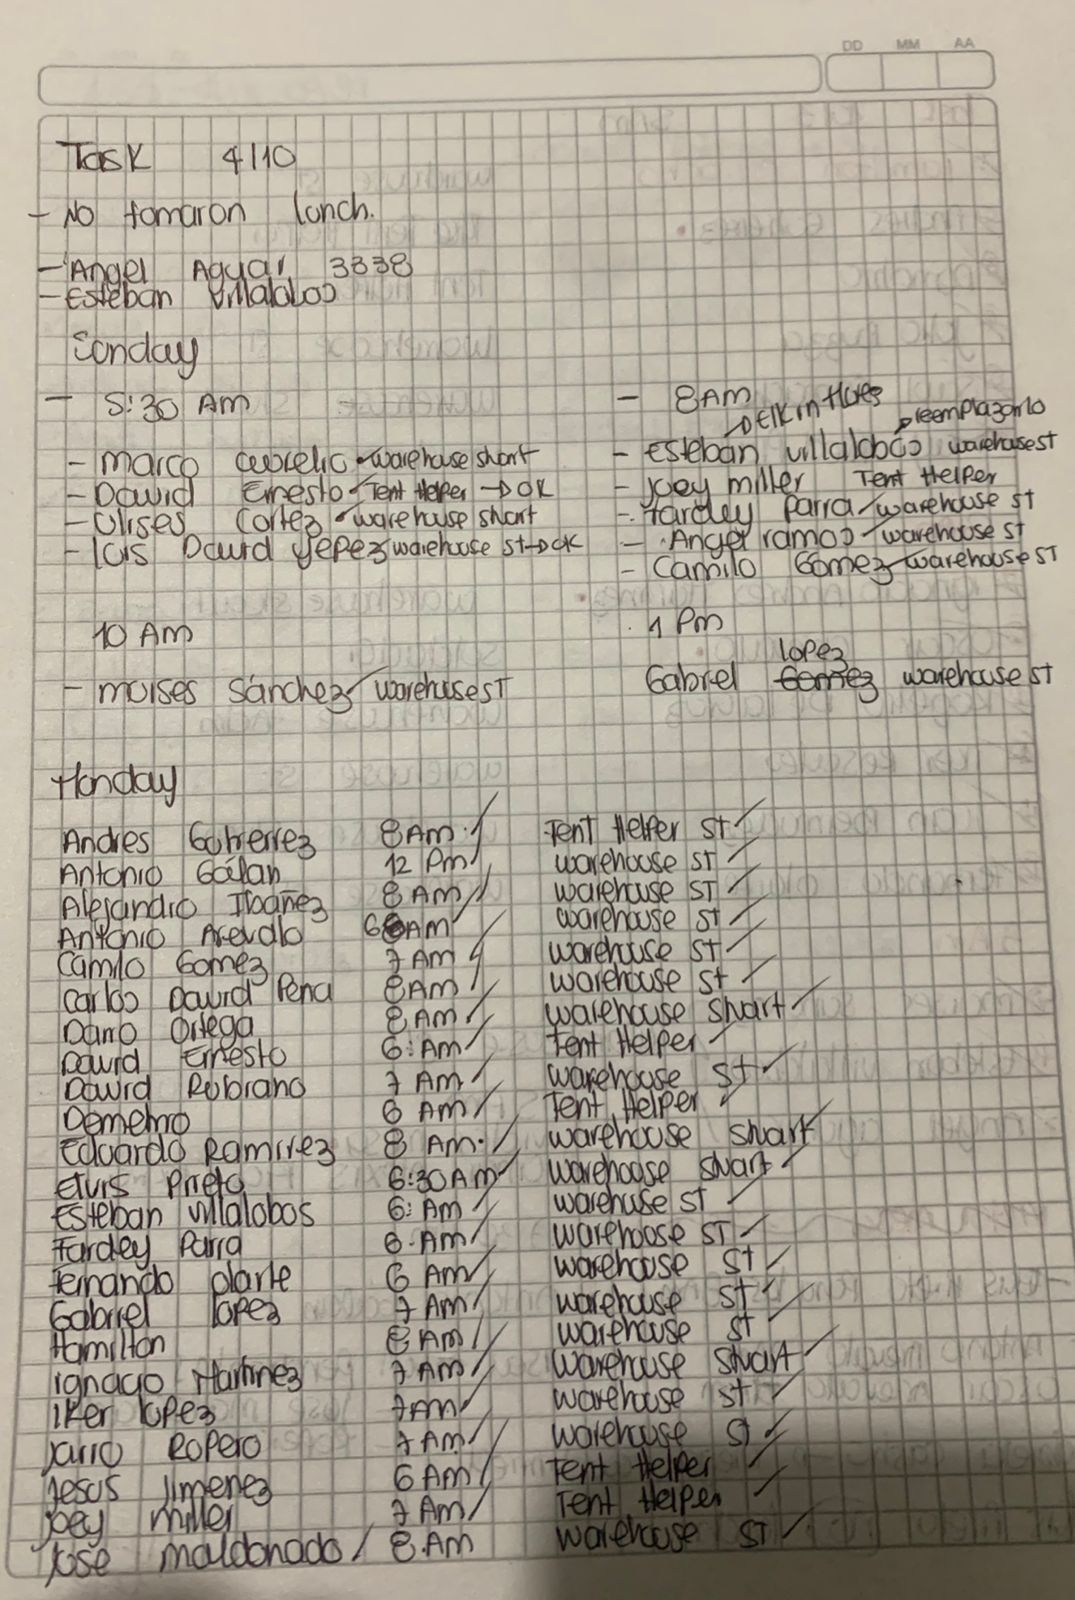 DD MM AA
Task 4/10
- No tomaron lonch.
- Angel Aguiar 3838
- Esteban Villalobos
Sonday
- 5:30 AM
- marco aurelio warehouse short
- David Ernesto Tent Helper → OK
- Ulises Cortez warehouse short
- luis David Yepez warehouse st → OK
- 8AM
→ Elkin flores
→ reemplazarlo
- Esteban villalobos warehouse st
- Joey miller Tent Helper
- Fardey Parra warehouse st
- Angel ramos warehouse st
- Camilo Gomez warehouse ST
10 AM
- moises Sánchez warehouse ST
1 Pm
lopez
Gabriel Gomez warehouse st
Monday
Andres Gutierrez 8AM Tent Helper st
Antonio Galan 12 Pm warehouse st
Alejandro Ibañez 8 AM warehouse st
Antonio Arevalo 6 AM warehouse st
Camilo Gomez 7 AM warehouse st
Carlos David Pena 8AM warehouse st
Dario Ortega 8AM warehouse shart
David Ernesto 6: AM Tent Helper
David Rubiano 7 AM warehouse st
Demetrio 6 AM Tent Helper
Eduardo Ramirez 8 AM warehouse shart
Elvis Prieto 6:30AM warehoase shart
Esteban Villalobos 6: AM warehuse st
Fardey Parra 8 AM warehoose ST
Fernando olarte 6 AM warehouse st
Gabriel lopez 7 AM warehouse st
Hamilton 8 AM warehouse st
ignacio Martinez 7 AM warehouse shart
IKer lopez 7am warehouse st
Jairo Ropero 7 AM warehouse st
Jesus Jimenez 6 AM Tent Helper
Joey miller 7 AM Tent Helper
Jose maldonado 8 AM warehouse ST